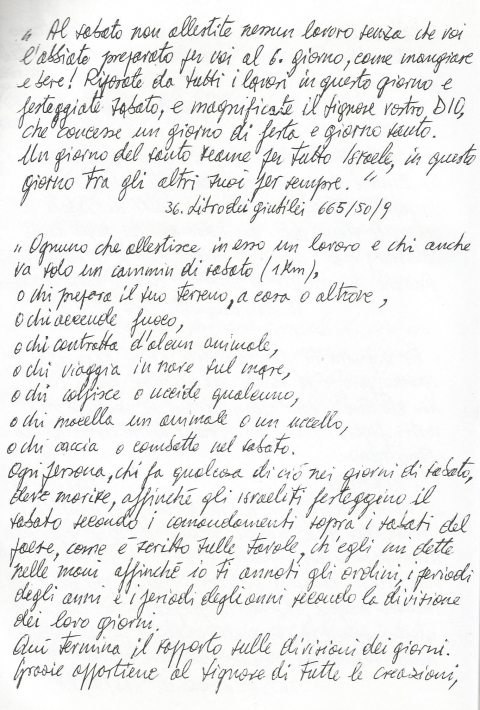 " Al sabato non allestite nessun lavoro senza che voi
l'abbiate preparato per voi al 6. giorno, come mangiare
e bere! Riposate da tutti i lavori in questo giorno e
festeggiate sabato, e magnificate il signore vostro DIO,
che concesse un giorno di festa e giorno santo.
Un giorno del santo reame per tutto Israele, in questo
giorno tra gli altri suoi per sempre. "
36. Libro dei giubilei 665/50/9
" Ognuno che allestisce in esso un lavoro e chi anche
va solo un cammin di sabato (1 km),
o chi prepara il suo terreno, a casa o altrove,
o chi accende fuoco,
o chi contratta d'alcun animale,
o chi viaggia in nave sul mare,
o chi colpisce o uccide qualcuno,
o chi macella un animale o un uccello,
o chi caccia o combatte nel sabato.
Ogni persona, chi fa qualcosa di ciò nei giorni di sabato,
deve morire, affinché gli israeliti festeggino il
sabato secondo i comandamenti sopra i sabati del
paese, come è scritto sulle tavole, ch'egli mi dette
nelle mani affinché io ti annoti gli ordini, i periodi
degli anni e i periodi degli anni secondo la divisione
dei loro giorni.
Qui termina il rapporto sulle divisioni dei giorni.
Grazie appartiene al signore di tutte le creazioni,